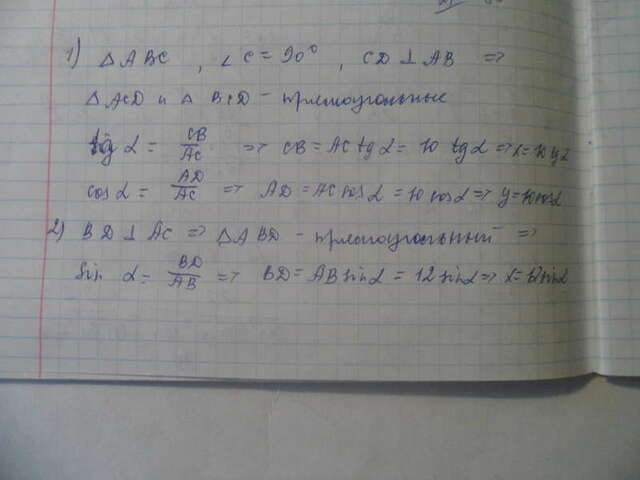 1) △ABC, ∠C = 90°, CD ⊥ AB ⇒
△ACD и △BCD - прямоугольные
tg α = CB/AC ⇒ CB = AC tg α = 10 tg α ⇒ x = 10 tg α
cos α = AD/AC ⇒ AD = AC cos α = 10 cos α ⇒ y = 10 cos α
2) BD ⊥ AC ⇒ △ABD - прямоугольный ⇒
Sin α = BD/AB ⇒ BD = AB sin α = 12 sin α ⇒ x = 12 sin α